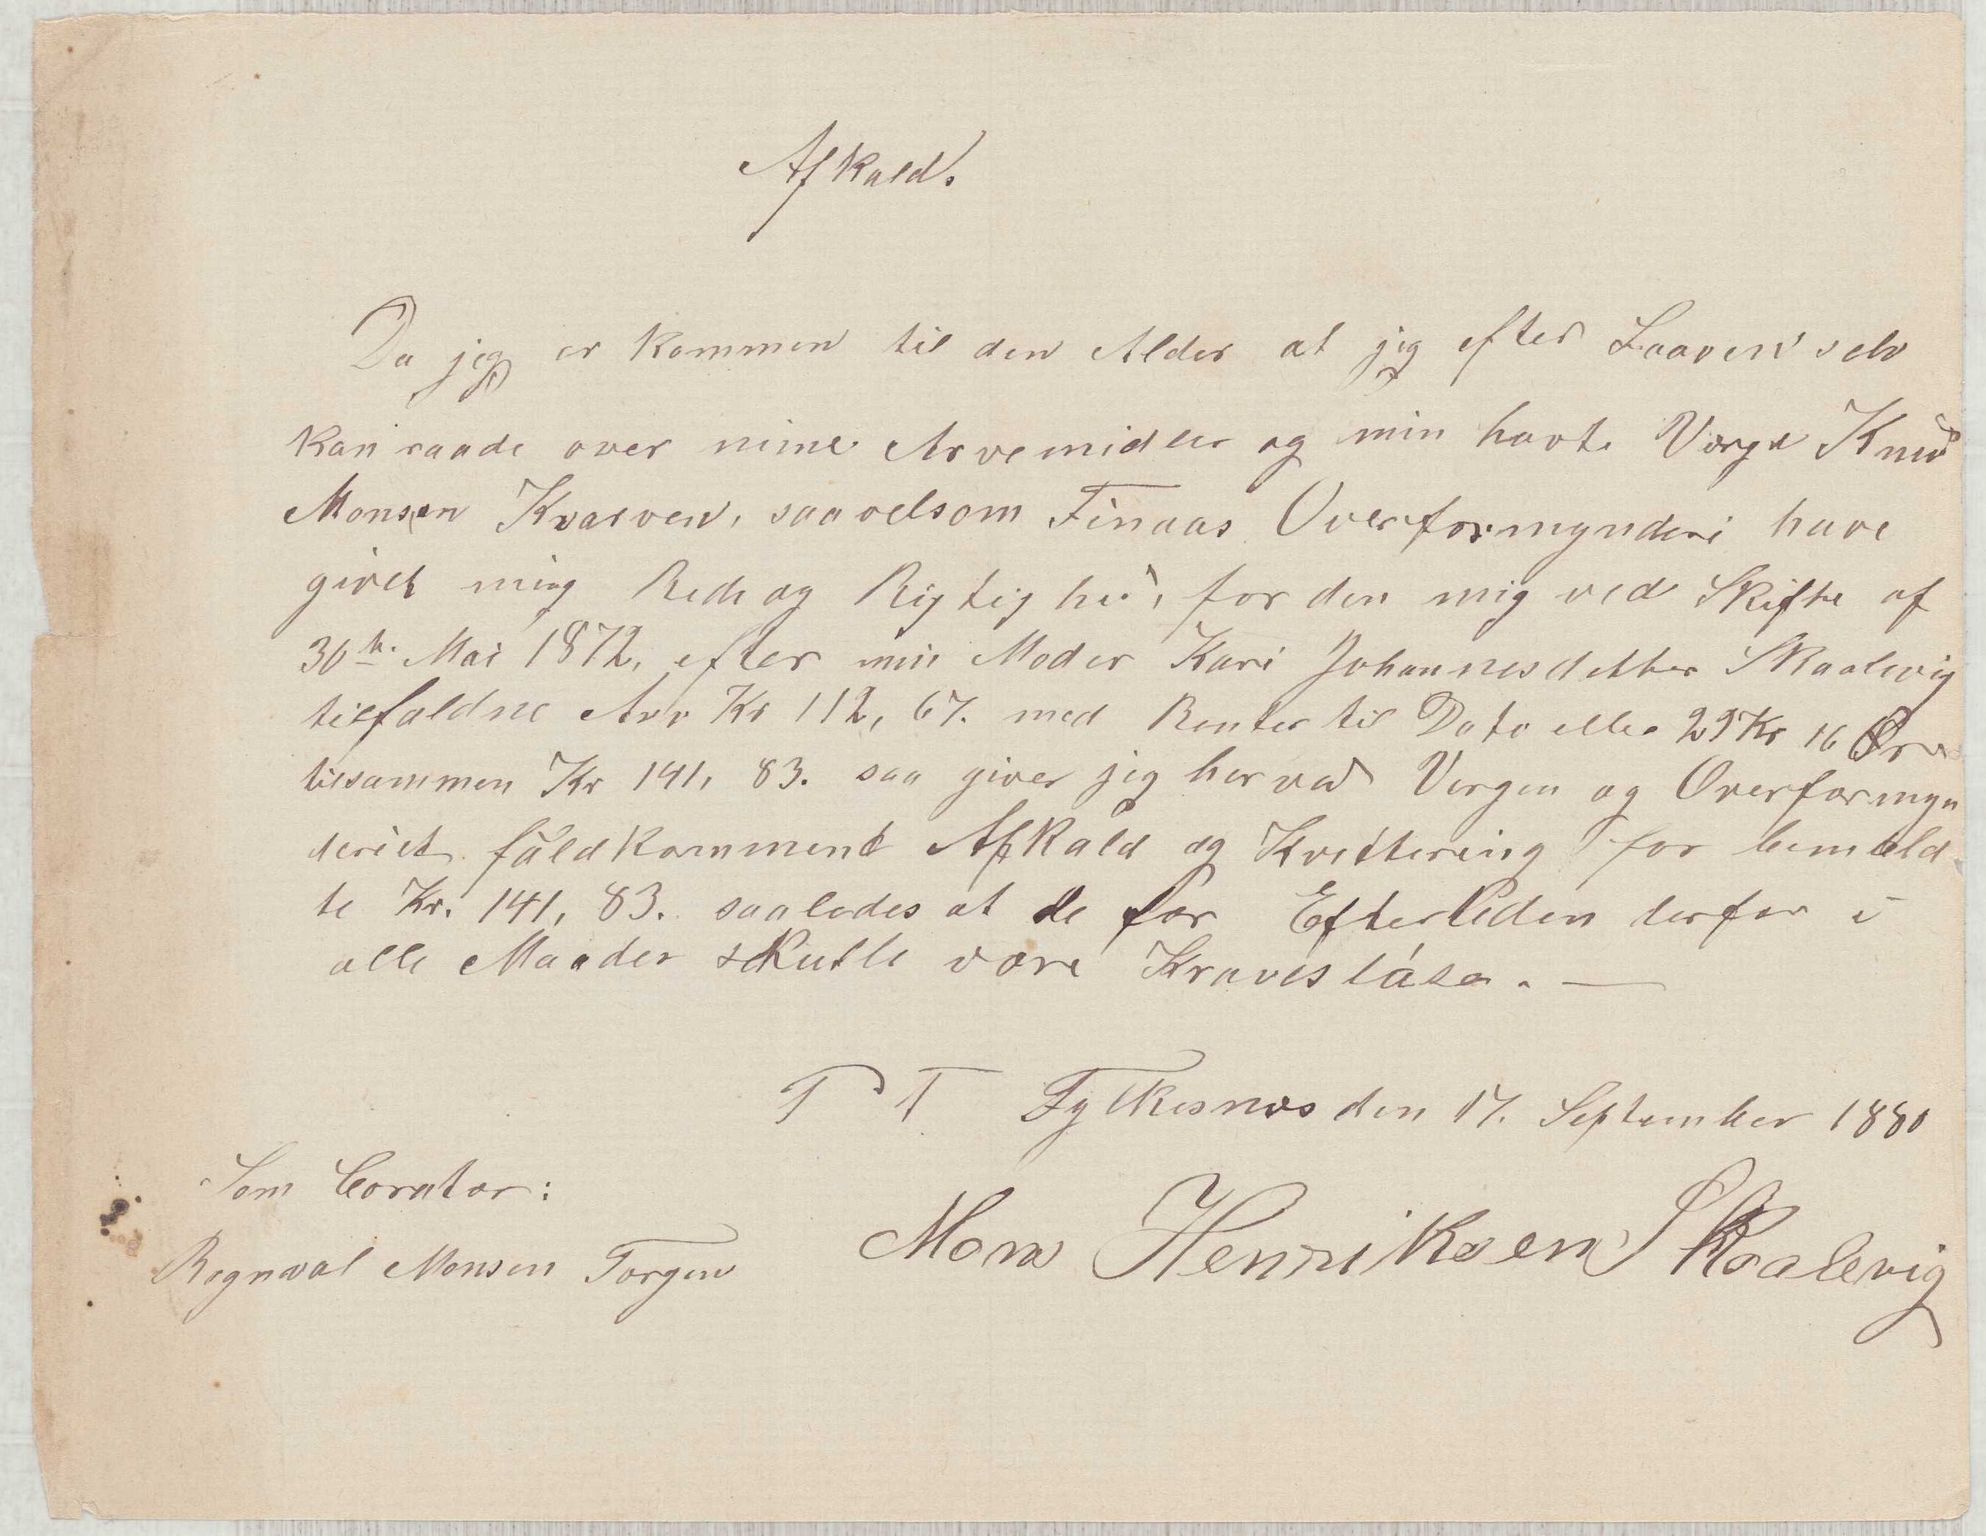 Afkald.
Da jeg er kommen til den Alder at jeg efter Laaven selv
kan raade over mine Arvemidler og min havte Verge Knud
Monsen Kvarven, saavelsom Finaas Overformynderi have
givet mig Rede og Rigtighed, for den mig ved Skifte af
30te Mai 1872, efter min Moder Kari Johannesdatter Skaalevig
tilfaldne Arv Kr 112, 67. med Renter til Dato eller 29 Kr 16 Øre
tilsammen Kr 141, 83. saa giver jeg herved Vergen og Overformyn
deriet fuldkomment Afkald og Kvittering for bemeld
te Kr. 141, 83. saaledes at de for Eftertiden derfor i
alle Maader skulle være Kravesløse. —
P T Fylkesnes den 17. September 1880
Som Corator:
Mons Henriksen Skaalevig
Rognval Monsen Torgen